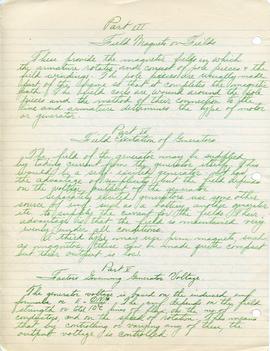 Part III
Field Magnets or Fields
These provide the magnetic field in which
the armature rotates and consist of pole pieces & the
field windings. The pole pieces are usually made
part of the frame so that it completes the magnetic
path. The field coils are wound around the pole
pieces and the method of their connection to the
line and armature determines the type of motor
or generator.
Part IV
Field Excitation of Generators
The field of the generator may be supplied
by taking current from the generator. This type
would be a self excited generator and has
the advantage of simplicity but the field depends
on the voltage output of the generator
Separately excited generators use some other
source of emf such as a battery, another generator
etc to supply the current for the fields. Their
advantage is that the field is maintained very
evenly under all conditions.
A third type may use perm. magnets such
as magnetos. These can be made quite compact
but their output is low.
Part V
Factors Governing Generator Voltage.
The generator voltage is found on the induced emf
formula or E = It depends on the field
strength or the no. of lines of flux, on the no. of
conductors and on the speed of rotation. This means
that by controlling or varying any of these, the
output voltage is controlled.